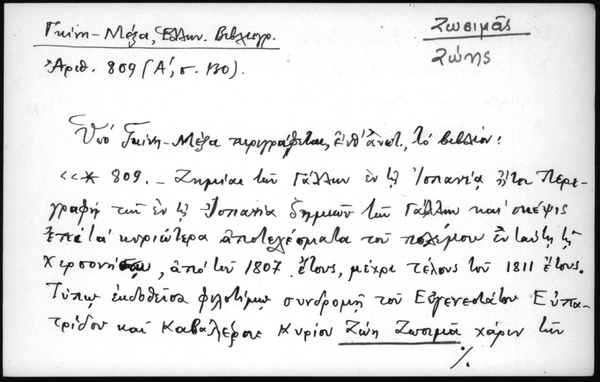 Γκίνη-Μέξα, Ἑλλην. Βιβλιογρ.
Ζωσιμᾶς
Ζώης
Ἀριθ. 809 (Α΄, σ. 130).
Ὑπὸ Γκίνη-Μέξα περιγράφεται, ἔνθ' ἀνωτ., τὸ βιβλίον:
«* 809. - Ζημίαι τῶν Γάλλων ἐν τῇ Ἱσπανίᾳ ἤτοι Περι-
γραφὴ τῶν ἐν τῇ Ἱσπανίᾳ ζημιῶν τῶν Γάλλων καὶ σκέψις
ἐπὶ τὰ κυριώτερα ἀποτελέσματα τοῦ πολέμου ἐν ταύτῃ τῇ
Χερσονήσῳ, ἀπὸ τοῦ 1807 ἔτους, μέχρι τέλους τοῦ 1811 ἔτους.
Τύπῳ ἐκδοθεῖσα φιλοτίμῳ συνδρομῇ τοῦ Εὐγενεστάτου Εὐπα-
τρίδου καὶ Καβαλέρου Κυρίου Ζώη Ζωσιμᾶ χάριν τῶν
%.